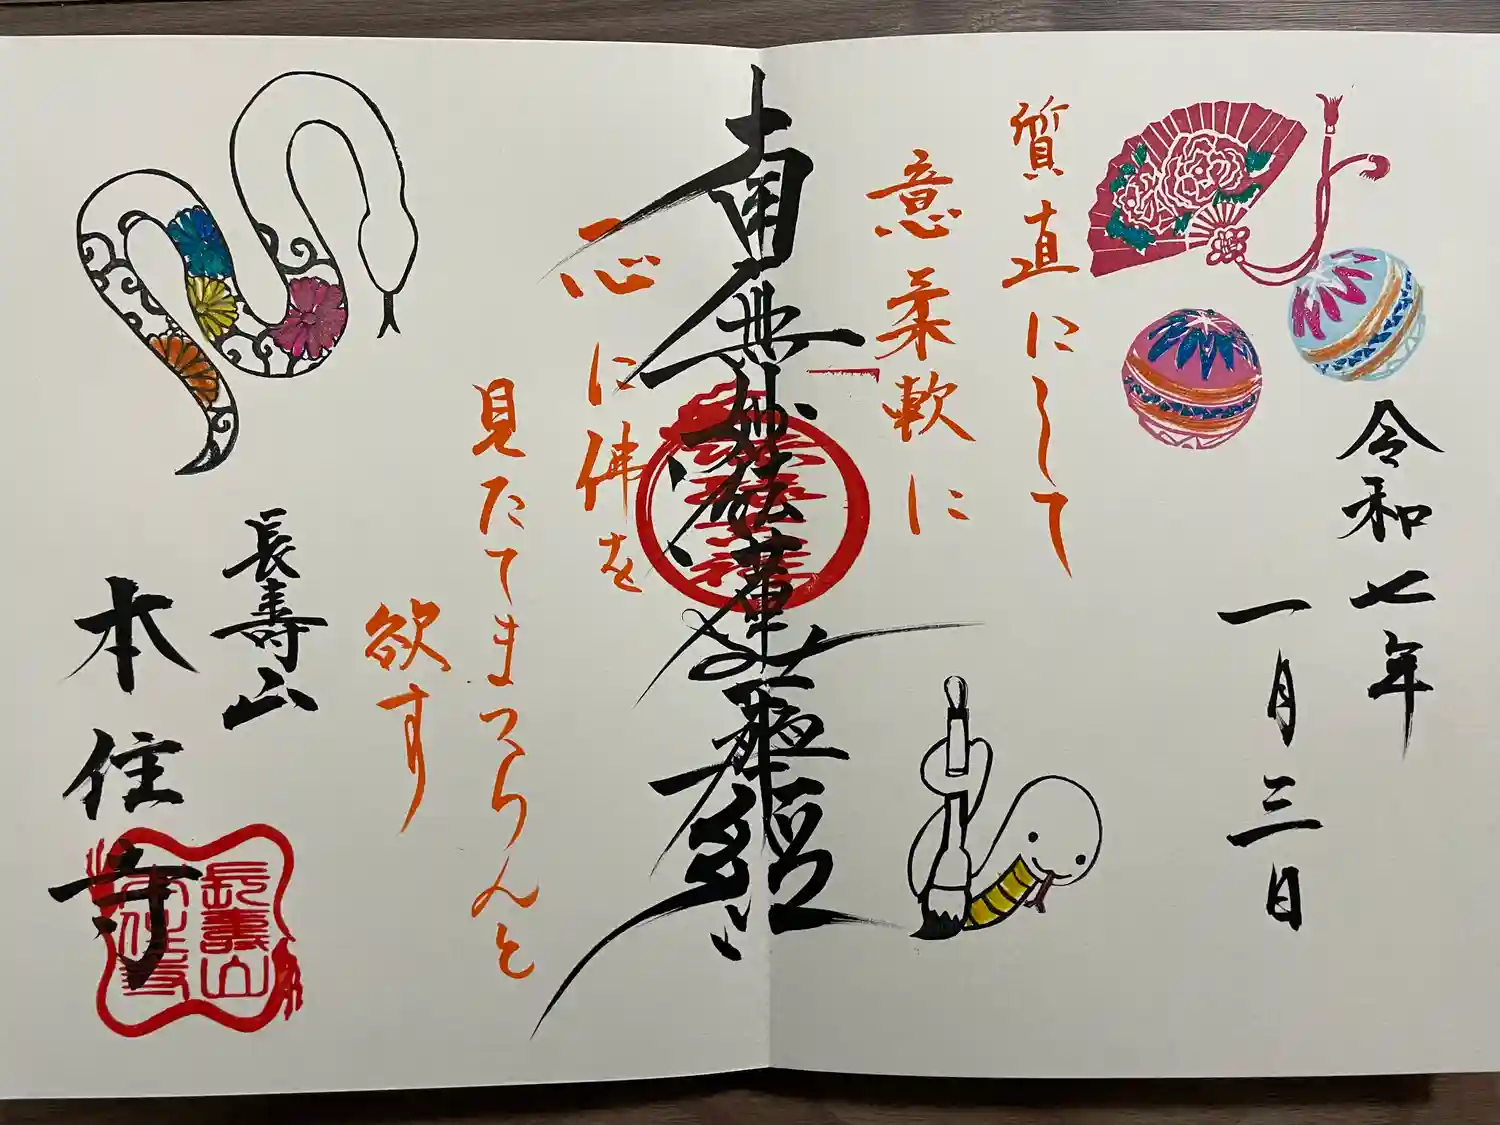 令和七年
一月三日
質直にして
意柔軟に
南無妙法蓮華經
一心に佛を
見たてまつらんと
欲す
長壽山
本住寺
長壽山
本住寺